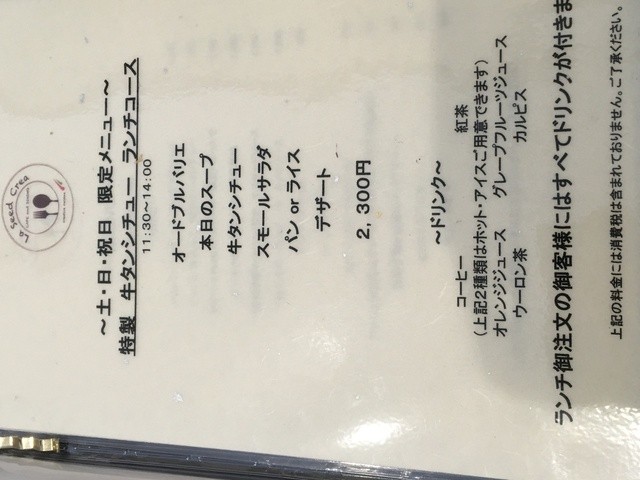 La seed Crea
～土・日・祝日 限定メニュー～
特製 牛タンシチュー ランチコース
11:30～14:00
オードブルバリエ
本日のスープ
牛タンシチュー
スモールサラダ
パン or ライス
デザート
2,300円
～ドリンク～
コーヒー 紅茶
(上記2種類はホット・アイスご用意できます)
オレンジジュース グレープフルーツジュース
ウーロン茶 カルピス
ランチ御注文の御客様にはすべてドリンクが付きま
上記の料金には消費税は含まれておりません。ご了承ください。